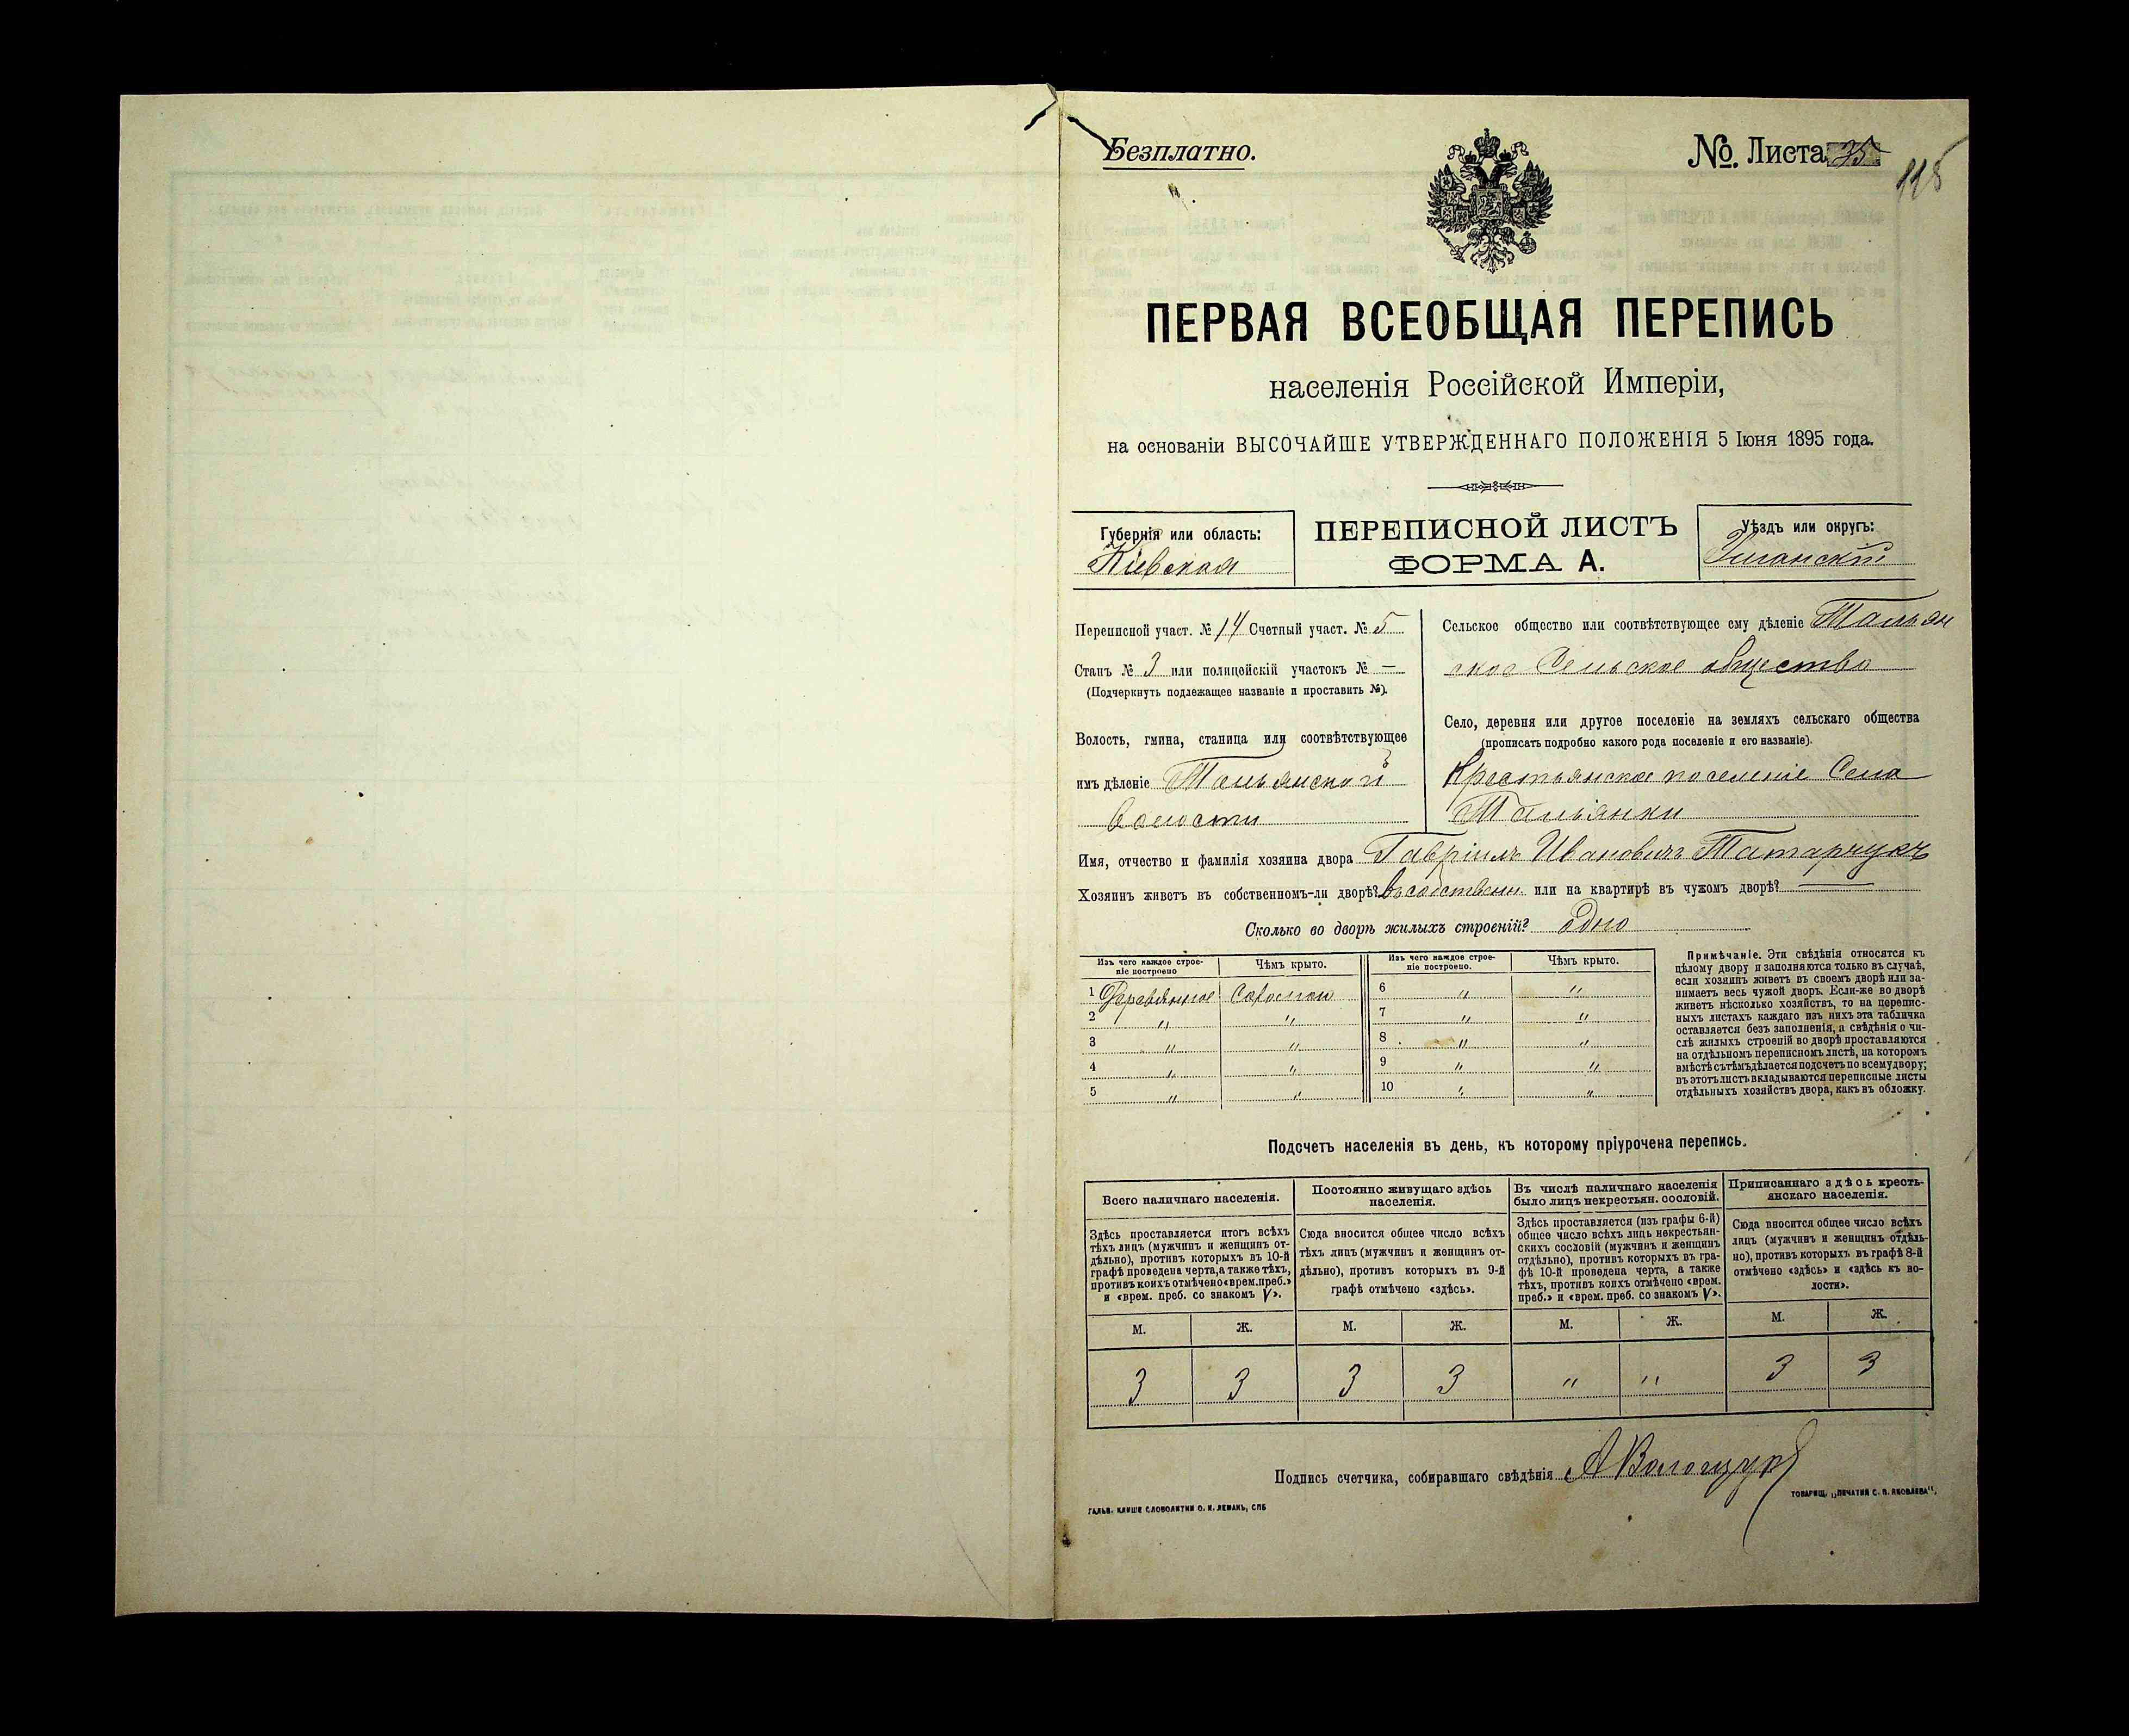 Безплатно.
№ Листа 35
118
ПЕРВАЯ ВСЕОБЩАЯ ПЕРЕПИСЬ
населенія Россійской Имперіи,
на основаніи ВЫСОЧАЙШЕ УТВЕРЖДЕННАГО ПОЛОЖЕНІЯ 5 Іюня 1895 года.
Губернія или область:
Кіевская
ПЕРЕПИСНОЙ ЛИСТЪ
ФОРМА А.
Уѣздъ или округъ:
Уманскій
Переписной участ. № 14 Счетный участ. № 5
Станъ № 3 или полицейскій участокъ № —
(Подчеркнуть подлежащее названіе и проставить №).
Волость, гмина, станица или соотвѣтствующее
имъ дѣленіе Тальянской
Волости
Сельское общество или соотвѣтствующее ему дѣленіе Тальян
ское Сельское общество
Село, деревня или другое поселеніе на земляхъ сельскаго общества
(прописать подробно какого рода поселеніе и его названіе).
Крестьянское поселеніе Села
Тальянки
Имя, отчество и фамилія хозяина двора Гавріилъ Ивановичъ Татарчукъ
Хозяинъ живетъ въ собственномъ-ли дворѣ? Въ собственн. или на квартирѣ въ чужомъ дворѣ? —
Сколько во дворѣ жилыхъ строеній? одно
Изъ чего каждое строе-
ніе построено
Чѣмъ крыто.
Изъ чего каждое строе-
ніе построено.
Чѣмъ крыто.
1 Деревянное Соломою 6 " "
2 " " 7 " "
3 " " 8 " "
4 " " 9 " "
5 " " 10 " "
Примѣчаніе. Эти свѣдѣнія относятся къ
цѣлому двору и заполняются только въ случаѣ,
если хозяинъ живетъ въ своемъ дворѣ или за-
нимаетъ весь чужой дворъ. Если-же во дворѣ
живетъ нѣсколько хозяйствъ, то на перепис-
ныхъ листахъ каждаго изъ нихъ эта табличка
оставляется безъ заполненія, а свѣдѣнія о чи-
слѣ жилыхъ строеній во дворѣ проставляются
на отдѣльномъ переписномъ листѣ, на которомъ
вмѣстѣ съ тѣмъ дѣлается подсчетъ по всему двору;
въ этотъ листъ вкладываются переписные листы
отдѣльныхъ хозяйствъ двора, какъ въ обложку.
Подсчетъ населенія въ день, къ которому пріурочена перепись.
Всего наличнаго населенія.
Здѣсь проставляется итогъ всѣхъ
тѣхъ лицъ (мужчинъ и женщинъ от-
дѣльно), противъ которыхъ въ 10-й
графѣ проведена черта, а также тѣхъ,
противъ коихъ отмѣчено «врем. преб.»
и «врем. преб. со знакомъ V».
Постоянно живущаго здѣсь
населенія.
Сюда вносится общее число всѣхъ
тѣхъ лицъ (мужчинъ и женщинъ от-
дѣльно), противъ которыхъ въ 9-й
графѣ отмѣчено «здѣсь».
Въ числѣ наличнаго населенія
было лицъ некрестьян. сословій.
Здѣсь проставляется (изъ графы 6-й)
общее число всѣхъ лицъ некрестьян-
скихъ сословій (мужчинъ и женщинъ
отдѣльно), противъ которыхъ въ гра-
фѣ 10-й проведена черта, а также
тѣхъ, противъ коихъ отмѣчено «врем.
преб.» и «врем. преб. со знакомъ V».
Приписаннаго здѣсь кресть-
янскаго населенія.
Сюда вносится общее число всѣхъ
лицъ (мужчинъ и женщинъ отдѣль-
но), противъ которыхъ въ графѣ 8-й
отмѣчено «здѣсь» и «здѣсь къ во-
лости».
М. Ж. М. Ж. М. Ж. М. Ж.
3 3 3 3 " " 3 3
Подпись счетчика, собиравшаго свѣдѣнія
ГАЛЬВ. КЛИШЕ СЛОВОЛИТНИ О. И. ЛЕМАНЪ, СПБ
ТОВАРИЩ. „ПЕЧАТНЯ С. П. ЯКОВЛЕВА“.